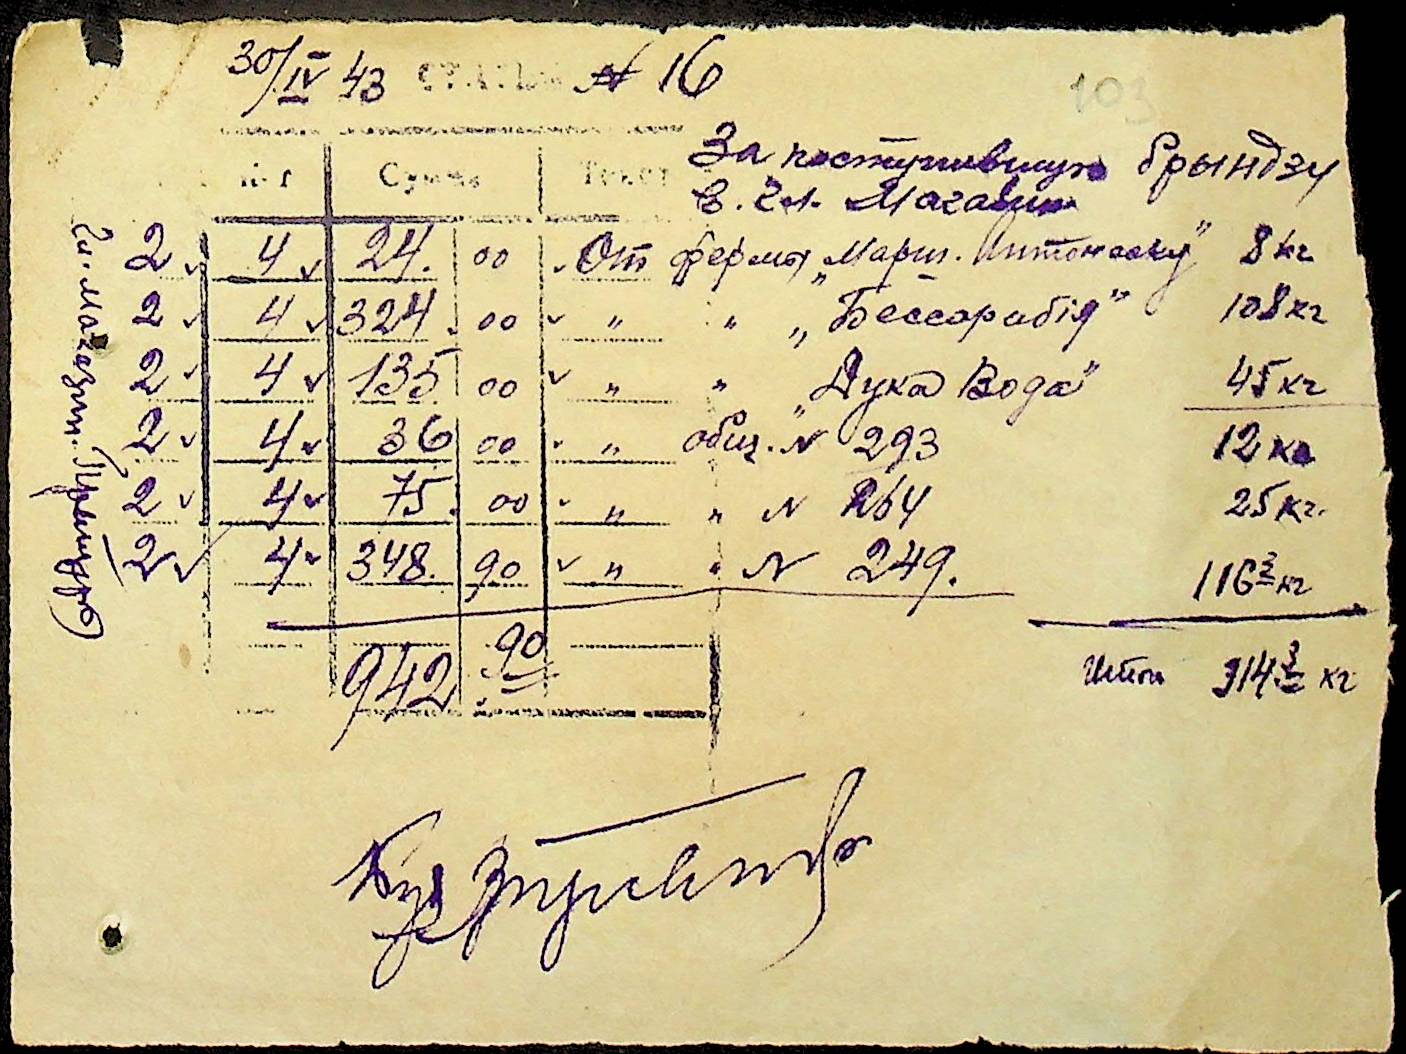 30/IV 43 СТАТЬЯ № 16
103
За поступившую брындзу
в. Гл. Магазин
Сумма Текст
2 4 24. 00 От фермы „Марш. Антонеску" 8 кг
2 4 324. 00 " " „Бессарабія" 108 кг
2 4 135 00 " " „Дука Вода" 45 кг
2 4 36 00 " общ. № 293 12 кг
2 4 75. 00 " " № 264 25 кг.
2 4 348. 90 " " № 249. 116 3 кг
942 90
Итого 314 3 кг
Гл. Магазин.
Бух